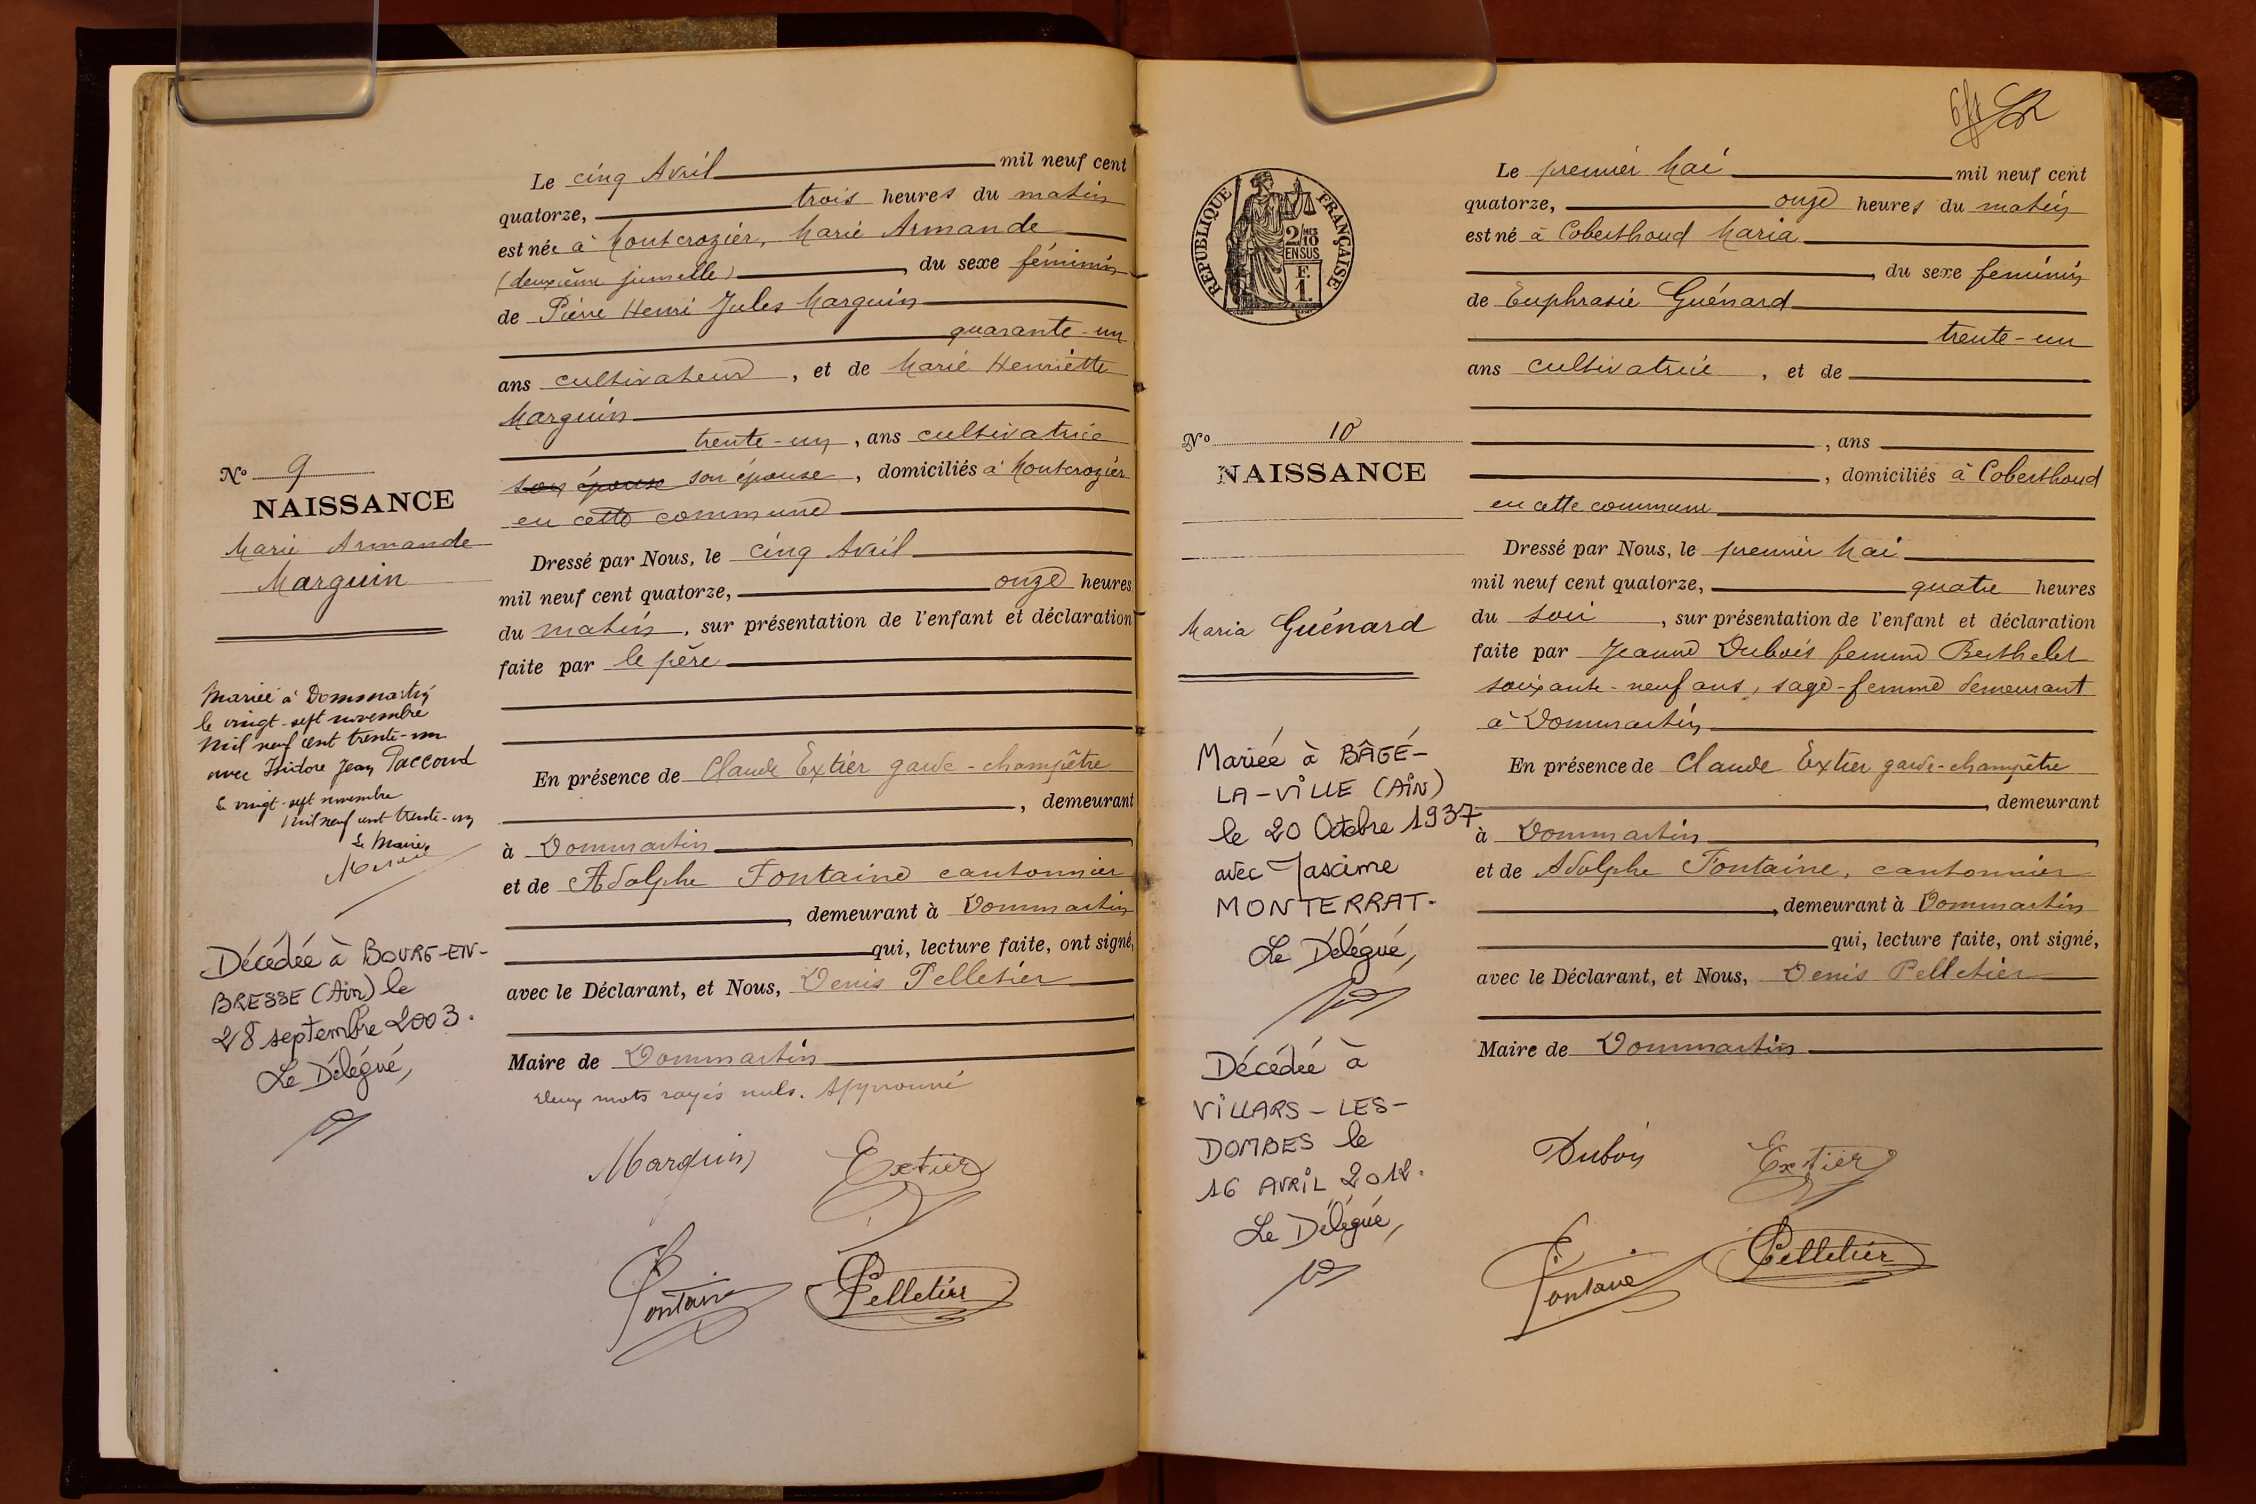 Le cinq Avril mil neuf cent
quatorze, trois heures du matin
est née à Montcrozier, Marie Armande
(deuxième jumelle), du sexe féminin
de Pierre Henri Jules Marguin
quarante-un
ans cultivateur, et de Marie Henriette
Marguin
trente-un, ans cultivatrice
son épouse son épouse, domiciliés à Montcrozier
en cette commune
Dressé par Nous, le cinq Avril
mil neuf cent quatorze, onze heures
du matin, sur présentation de l'enfant et déclaration
faite par le père
En présence de Claude Extier garde-champêtre
, demeurant
à Dommartin
et de Adolphe Fontaine cantonnier
, demeurant à Dommartin
qui, lecture faite, ont signé,
avec le Déclarant, et Nous, Denis Pelletier
Maire de Dommartin
deux mots rayés nuls. Approuvé
Marguin Extier
Fontaine Pelletier
N° 9
NAISSANCE
Marie Armande
Marguin
Mariée à Dommartin
le vingt-sept novembre
mil neuf cent trente-un
avec Isidore Jean Paccoud
Le vingt-sept novembre
mil neuf cent trente-un
Le Maire
Décédée à BOURG-EN-
BRESSE (Ain) le
28 septembre 2003.
Le Délégué,
RÉPUBLIQUE FRANÇAISE
2/10
EN SUS
F.
1.
Le premier Mai mil neuf cent
quatorze, onze heures du matin
est né à Coberthoud Maria
, du sexe feminin
de Euphrasie Guénard
trente-un
ans cultivatrice, et de
, ans
, domiciliés à Coberthoud
en cette commune
Dressé par Nous, le premier Mai
mil neuf cent quatorze, quatre heures
du soir, sur présentation de l'enfant et déclaration
faite par Jeanne Dubois femme Berthelet
soixante-neuf ans, sage-femme demeurant
à Dommartin
En présence de Claude Extier garde-champêtre
, demeurant
à Dommartin
et de Adolphe Fontaine, cantonnier
, demeurant à Dommartin
qui, lecture faite, ont signé,
avec le Déclarant, et Nous, Denis Pelletier
Maire de Dommartin
Dubois Extier
Fontaine Pelletier
N° 10
NAISSANCE
Maria Guénard
Mariée à BÂGÉ-
LA-VILLE (AIN)
le 20 Octobre 1937
avec Maxime
MONTERRAT.
Le Délégué,
Décédée à
VILLARS-LES-
DOMBES le
16 AVRIL 2012.
Le Délégué,